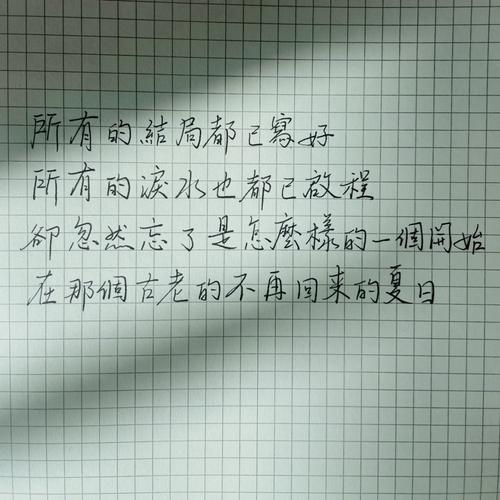 所有的結局都已寫好
所有的淚水也都已啟程
卻忽然忘了是怎麼樣的一個開始
在那個古老的不再回来的夏日